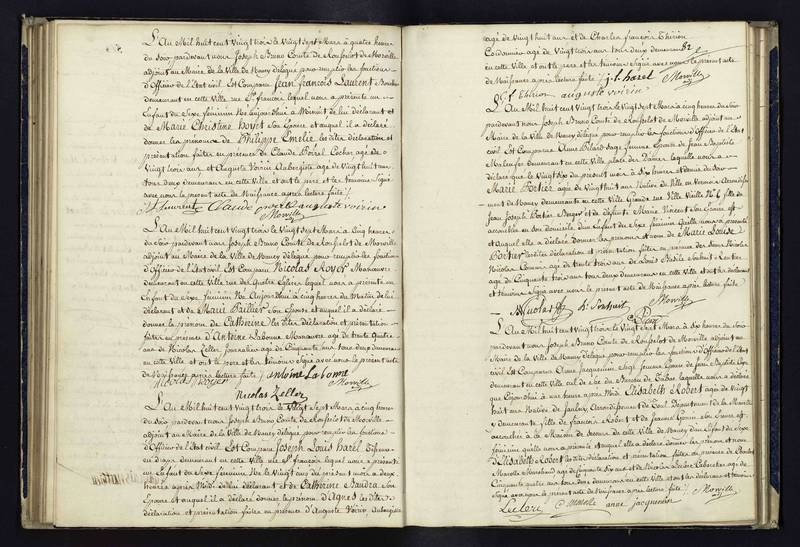 L'An Mil huit cent Vingt trois le Vingt Sept Mars à quatre heures
du soir pardevant nous Joseph Bruno Comte de Ronfselot de Morville
adjoint au Maire de la Ville de Nancy délégué pour remplir les fonctions
d'Officier de l'État civil Est Comparu Jean François Laurent
demeurant en cette Ville rue St. François lequel nous a présenté un
Enfant du Sexe féminin Né aujourd'hui à Minuit de lui déclarant et
de Marie Christine Hoyet son Epouse et auquel il a déclaré
donner les prénoms de Philippe Emélie les dites déclaration et
présentation faites en présence de Claude Poirel Cocher âgé de
Vingt trois ans et Auguste Voirin Aubergiste âgé de Vingt huit ans
tous deux demeurans en cette Ville et ont le père et les témoins Signé
avec nous le présent acte de Naissance après lecture faite /.
Laurent Claude poirel auguste voirin
Morville
L'An Mil huit cent Vingt trois le Vingt Sept Mars à Cinq heures
du Soir pardevant nous Joseph Bruno Comte de Ronfselot de Morville
adjoint au Maire de la Ville de Nancy délégué pour remplir les fonctions
d'Officier de l'État civil Est Comparu Nicolas Royer Manœuvre
demeurant en cette Ville rue des Quatre Eglises lequel nous a présenté un
Enfant du Sexe féminin Né Aujourd'hui à Cinq heures du Matin de lui
déclarant et de Marie Baillier Son Epouse et auquel il a déclaré
donner le prénom de Catherine les dites déclaration et présentation
faites en présence d'Antoine Labonne Manœuvre âgé de trente Quatre
ans et Nicolas Zeller Journalier âgé de Cinquante ans tous deux demeurans
en cette Ville et ont le père et les témoins Signé avec nous le présent acte
de Naissance après lecture faite /. antoine Labonne
Nicolas Royer Morville
Nicolas Zeller
L'An Mil huit cent Vingt trois le Vingt Sept Mars à cinq heures
du Soir pardevant nous Joseph Bruno Comte de Ronfselot de Morville
adjoint au Maire de la Ville de Nancy délégué pour remplir les fonctions
d'Officier de l'État civil Est Comparu Joseph Louis harel
demeurant en cette Ville rue St. François lequel nous a présenté
un Enfant du Sexe féminin Né le Vingt Six du présent mois à deux
heures après Midi de lui déclarant et de Catherine Baudra Son
Epouse et auquel il a déclaré donner le prénom d'Agnès les dites
déclaration et présentation faites en présence d'Auguste Voirin Aubergiste
82
âgé de Vingt huit ans et de Charles François Thirion
Cordonnier âgé de Vingt trois ans tous deux demeurans
en cette Ville et ont le père et les témoins Signé avec nous le présent acte
de Naissance après lecture faite /. j. l. harel Morville
Thirion auguste voirin
L'An Mil huit cent Vingt trois le Vingt Sept Mars à cinq heures du Soir
pardevant nous Joseph Bruno Comte de Ronfselot de Morville adjoint au
Maire de la Ville de Nancy délégué pour remplir les fonctions d'Officier de l'État
civil Est Comparu Anne Sage femme Epouse de Jean Baptiste
demeurant en cette Ville place des Dames laquelle nous a
déclaré que le Vingt Six du présent mois à Six heures du Soir
Marie Portier âgée de Vingt huit ans Native de
demeurant en cette Ville Grande rue Ville Vieille fille de
Jean Joseph Portier Berger et de défunte Marie Vincent Son Epouse est
accouchée en Son domicile d'un Enfant du Sexe féminin Qu'elle nous a présenté
et Auquel elle a déclaré donner les prénoms et nom de Marie Louise
Portier les dites déclaration et présentation faites en présence des Sieurs Nicolas
âgé de trente trois ans et Louis Basile Toussaint Rentier
âgé de Cinquante trois ans tous deux demeurans en cette Ville et ont les déclarant
et témoins Signé avec nous le présent acte de Naissance après lecture faite
Nicolas Toussaint Morville
L'An Mil huit cent Vingt trois le Vingt Sept Mars à Six heures du Soir
pardevant nous Joseph Bruno Comte de Ronfselot de Morville adjoint au
Maire de la Ville de Nancy délégué pour remplir les fonctions d'Officier de l'État
civil Est Comparue Anne Jacquemin Sage femme Epouse de Jean Baptiste
demeurant en cette Ville laquelle nous a déclaré
que Aujourd'hui à une heure après Midi Elisabeth Robert âgée de Vingt
huit ans Native de Arrondissement de Toul Département de la Meurthe
y demeurant fille de François Robert et de Jeanne Son Epouse est
accouchée à la Maison de Secours de cette Ville de Nancy d'un Enfant du Sexe
féminin qu'elle nous a présenté et auquel elle a déclaré donner les prénom et nom
d'Elisabeth Robert les dites déclaration et présentation faites en présence de Charles
Marcelle Marchand âgé de Cinquante Six ans et de Nicolas Leclerc Laboureur âgé de
Cinquante quatre ans tous deux demeurans en cette Ville et ont les déclarant et témoins
Signé avec nous le présent acte de Naissance après lecture faite /. Morville
Leclerc Marcelle anne jacquemin